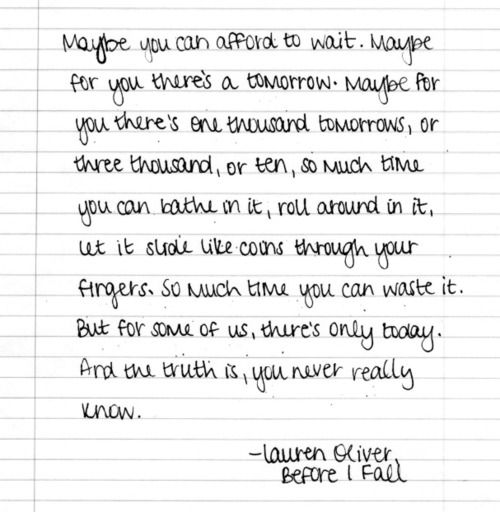 Maybe you can afford to wait. Maybe
for you there's a tomorrow. Maybe for
you there's one thousand tomorrows, or
three thousand, or ten, so much time
you can bathe in it, roll around in it,
let it slide like coins through your
fingers. So much time you can waste it.
But for some of us, there's only today.
And the truth is, you never really
know.
-Lauren Oliver,
Before I Fall